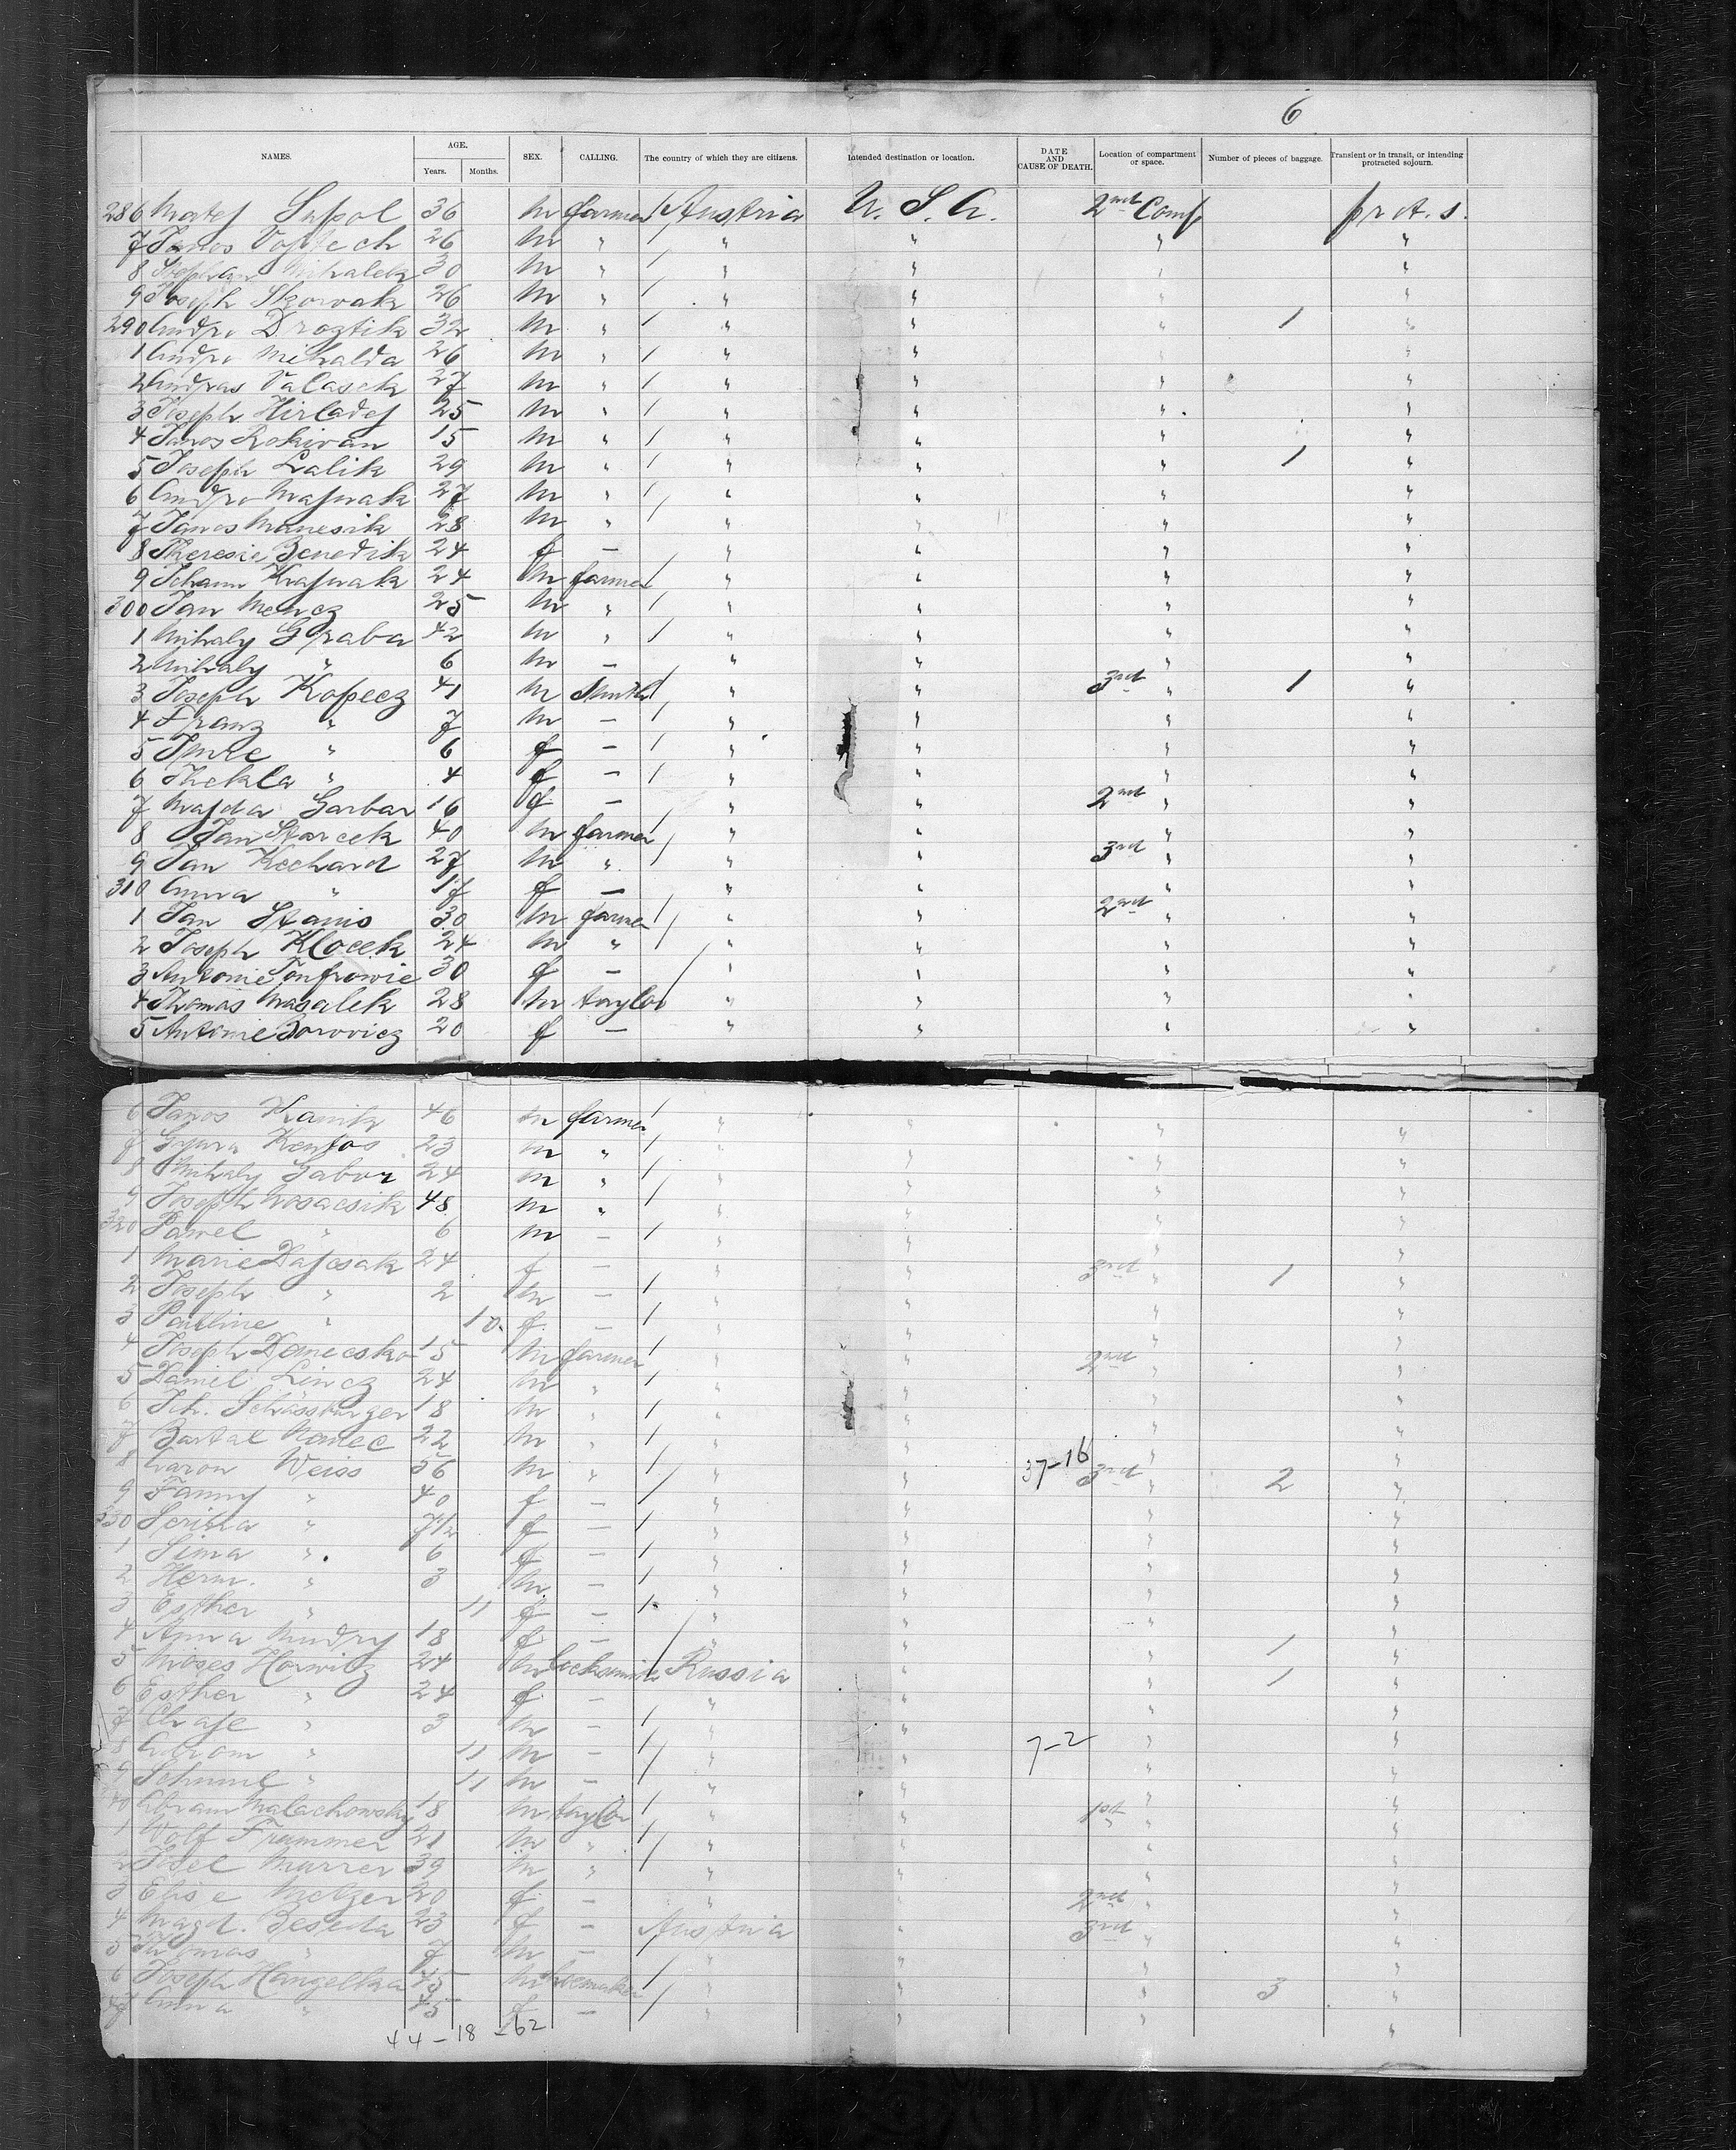 6
NAMES. AGE. Years. Months. SEX. CALLING. The country of which they are citizens. Intended destination or location. DATE AND CAUSE OF DEATH. Location of compartment or space. Number of pieces of baggage. Transient or in transit, or intending protracted sojourn.
286 Matej Supol 36 m farmer / Austria U. S. A. 2nd Comp prot. s.
7 Janos Vojtech 26 m " / " " " "
8 Stephan Mihalek 30 m " / " " " "
9 Joseph Skorvak 26 m " / " " " "
290 Andro Drogtik 32 m " / " " " 1 "
1 Andro Mihalda 26 m " / " " " "
2 Andras Valasek 27 m " / " " " "
3 Joseph Hirladej 25 m " / " " " "
4 Janos Rokivan 15 m " / " " " "
5 Joseph Lalik 29 m " / " " " 1 "
6 Andro Majnak 27 m " / " " " "
7 Janos Manesik 28 m " / " " " "
8 Theresie Benedik 24 f — " " " "
9 Johann Krajnak 24 m farmer / " " " "
300 Jan Mencz 25 m " / " " " "
1 Mihaly Graba 42 m " / " " " "
2 Mihaly " 6 m — " " " "
3 Joseph Kopecz 41 m Smith / " " 3rd " 1 "
4 Franz " 7 m — / " " " "
5 Imre " 6 f — / " " " "
6 Thekla " 4 f — / " " " "
7 Majda Garbar 16 f — " " 2nd " "
8 Jan Starcek 40 m farmer / " " " "
9 Jan Kechard 27 m " / " " 3rd " "
310 Anna " 17 f — " " " "
1 Jan Stanis 30 m farmer / " " 2nd " "
2 Joseph Klocek 24 m " / " " " "
3 Antonie 30 f — / " " " "
4 Thomas Masalek 28 m taylor / " " " "
5 Antonie Borovicz 20 f — " " " "
6 Janos Kanik 46 m farmer / " " " "
7 23 m " / " " " "
8 Mihaly Gabor 24 m " / " " " "
9 Joseph 48 m " / " " " "
320 Pawel " 6 m — / " " " "
1 Marie Dajcsak 24 f — " " 3rd " 1 "
2 Joseph " 2 m — / " " " "
3 Pauline " 10. f — / " " " "
4 Joseph Danecsko 15 m farmer / " " 2nd " "
5 Daniel Lincz 24 m " / " " " "
6 Joh. Schässburger 18 m " / " " " "
7 Bartal 22 m " / " " " "
8 Aaron Weiss 56 m " / " " 37-16 3rd " 2 "
9 Fanny " 40 f — / " " " "
330 " 7 1/2 f — / " " " "
1 Sima " 6 f — / " " " "
2 Herm. " 3 m — / " " " "
3 Esther " 11 f — / " " " "
4 Anna Mudry 18 f — " " " 1 "
5 Moses Horwitz 24 m locksmith / Russia " " 1 "
6 Esther " 24 f — " " " "
7 Chaje " 3 m — / " " " "
8 Abram " 11 m — / " " 7-2 " "
9 Schmul " 11 m — / " " " "
340 Abram Malachowsky 18 m taylor / " " 1st " "
1 Wolf Frummer 21 m " / " " " "
2 Josel Murrer 39 m " / " " " "
3 Elise Melzer 20 f — " " 2nd " "
4 Magd. Beseda 23 f — Austria " 3rd " "
5 Thomas " 7 m — " " " "
6 Joseph Hangelka 45 m shoemaker / " " " 3 "
47 Anna " 45 f — / " " " "
44-18-62